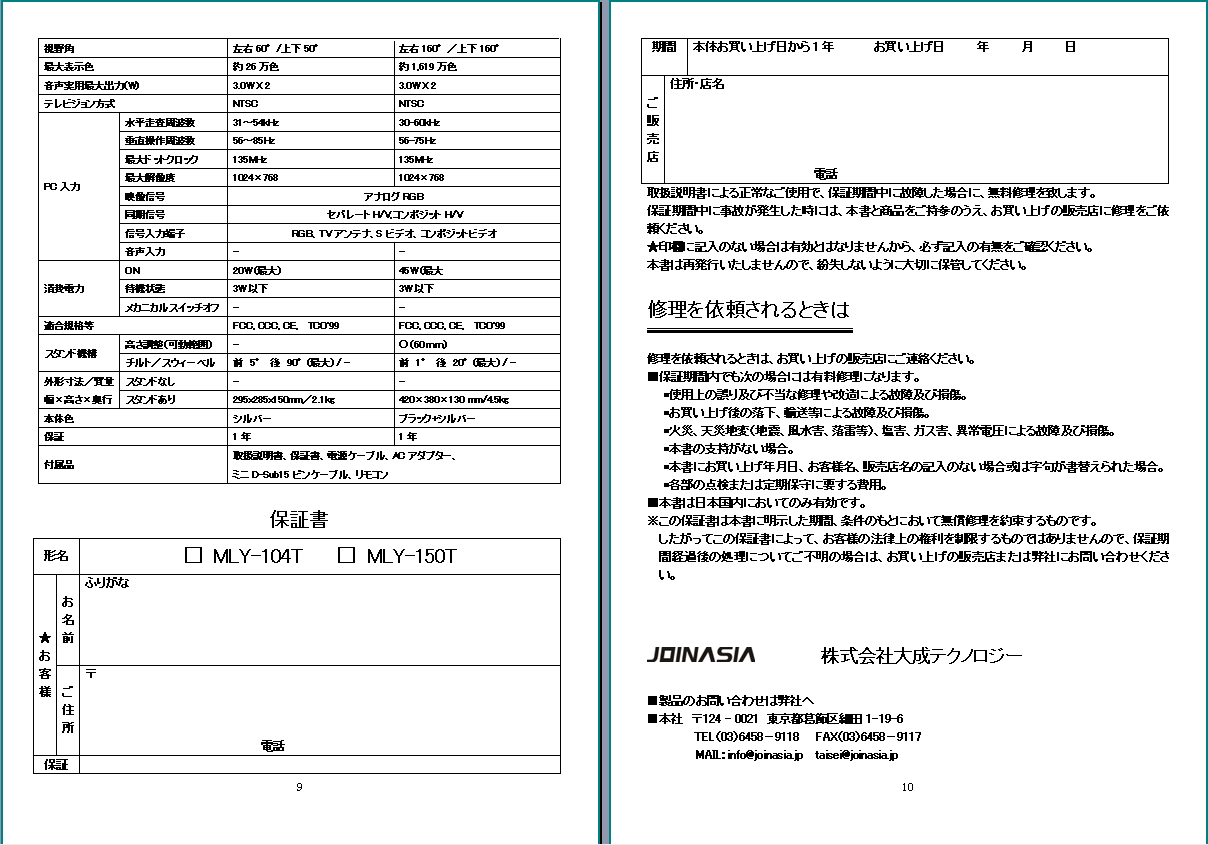 視野角 左右60°/上下50° 左右160°／上下160°
最大表示色 約26万色 約1,619万色
音声実用最大出力(W) 3.0W X 2 3.0W X 2
テレビジョン方式 NTSC NTSC
PC入力
水平走査周波数 31～54kHz 30-60kHz
垂直操作周波数 56～85Hz 56-75Hz
最大ドットクロック 135MHz 135MHz
最大解像度 1024×768 1024×768
映像信号 アナログRGB
同期信号 セパレートH/V,コンポジットH/V
信号入力端子 RGB、TVアンテナ、Sビデオ、コンポジットビデオ
音声入力 － －
消費電力
ON 20W(最大) 45W(最大
待機状態 3W以下 3W以下
メカニカルスイッチオフ － －
適合規格等 FCC, CCC, CE, TCO'99 FCC, CCC, CE, TCO'99
スタンド機構
高さ調整（可動範囲） － ○(60mm)
チルト／スウィーベル 前 5° 後 90°(最大)/- 前 1° 後 20°(最大)/-
外形寸法／質量 スタンドなし － －
幅×高さ×奥行 スタンドあり 295x285x150mm／2.1kg 420×380×130 mm/4.5kg
本体色 シルバー ブラック+シルバー
保証 1年 1年
付属品 取扱説明書、保証書、電源ケーブル、ACアダプター、
ミニD-Sub15ピンケーブル、リモコン
保証書
形名 □ MLY-104T □ MLY-150T
★お客様
お名前
ふりがな
ご住所
〒
電話
保証
9
期間 本体お買い上げ日から1年 お買い上げ日 年 月 日
ご販売店
住所・店名
電話
取扱説明書による正常なご使用で、保証期間中に故障した場合に、無料修理を致します。
保証期間中に事故が発生した時には、本書と商品をご持参のうえ、お買い上げの販売店に修理をご依
頼ください。
★印欄に記入のない場合は有効とはなりませんから、必ず記入の有無をご確認ください。
本書は再発行いたしませんので、紛失しないように大切に保管してください。
修理を依頼されるときは
修理を依頼されるときは、お買い上げの販売店にご連絡ください。
■保証期間内でも次の場合には有料修理になります。
•使用上の誤り及び不当な修理や改造による故障及び損傷。
•お買い上げ後の落下、輸送等による故障及び損傷。
•火災、天災地変（地震、風水害、落雷等）、塩害、ガス害、異常電圧による故障及び損傷。
•本書の支持がない場合。
•本書にお買い上げ年月日、お客様名、販売店名の記入のない場合或は字句が書替えられた場合。
•各部の点検または定期保守に要する費用。
■本書は日本国内においてのみ有効です。
※この保証書は本書に明示した期間、条件のもとにおいて無償修理を約束するものです。
したがってこの保証書によって、お客様の法律上の権利を制限するものではありませんので、保証期
間経過後の処理についてご不明の場合は、お買い上げの販売店または弊社にお問い合わせくださ
い。
JOINASIA 株式会社大成テクノロジー
■製品のお問い合わせは弊社へ
■本社 〒124－0021 東京都葛飾区細田1-19-6
TEL(03)6458－9118 FAX(03)6458－9117
MAIL：info@joinasia.jp taisei@joinasia.jp
10